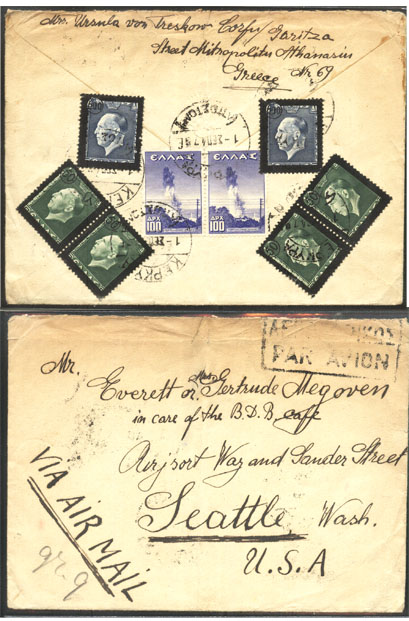 Mrs. Ursula von Treskow Corfu Garitza
Street Mitropolitus Athanasius
Greece Nr 69
ΕΛΛΑΣ
ΔΡΧ
100
ΔΡΧ
100
ΚΕΡΚΥΡΑ
PAR AVION
Mr.
Everett or Mrs Gertrude Megoven
in care of the B.D.B. cafe
Airport Way and Sander Street
Seattle, Wash.
U.S.A
VIA AIR MAIL
gr. 9